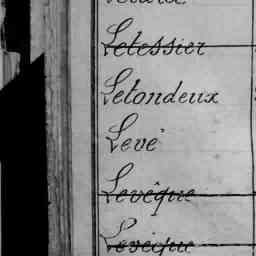 Letessier
Letondeux
Levé
Levêque
Levêque